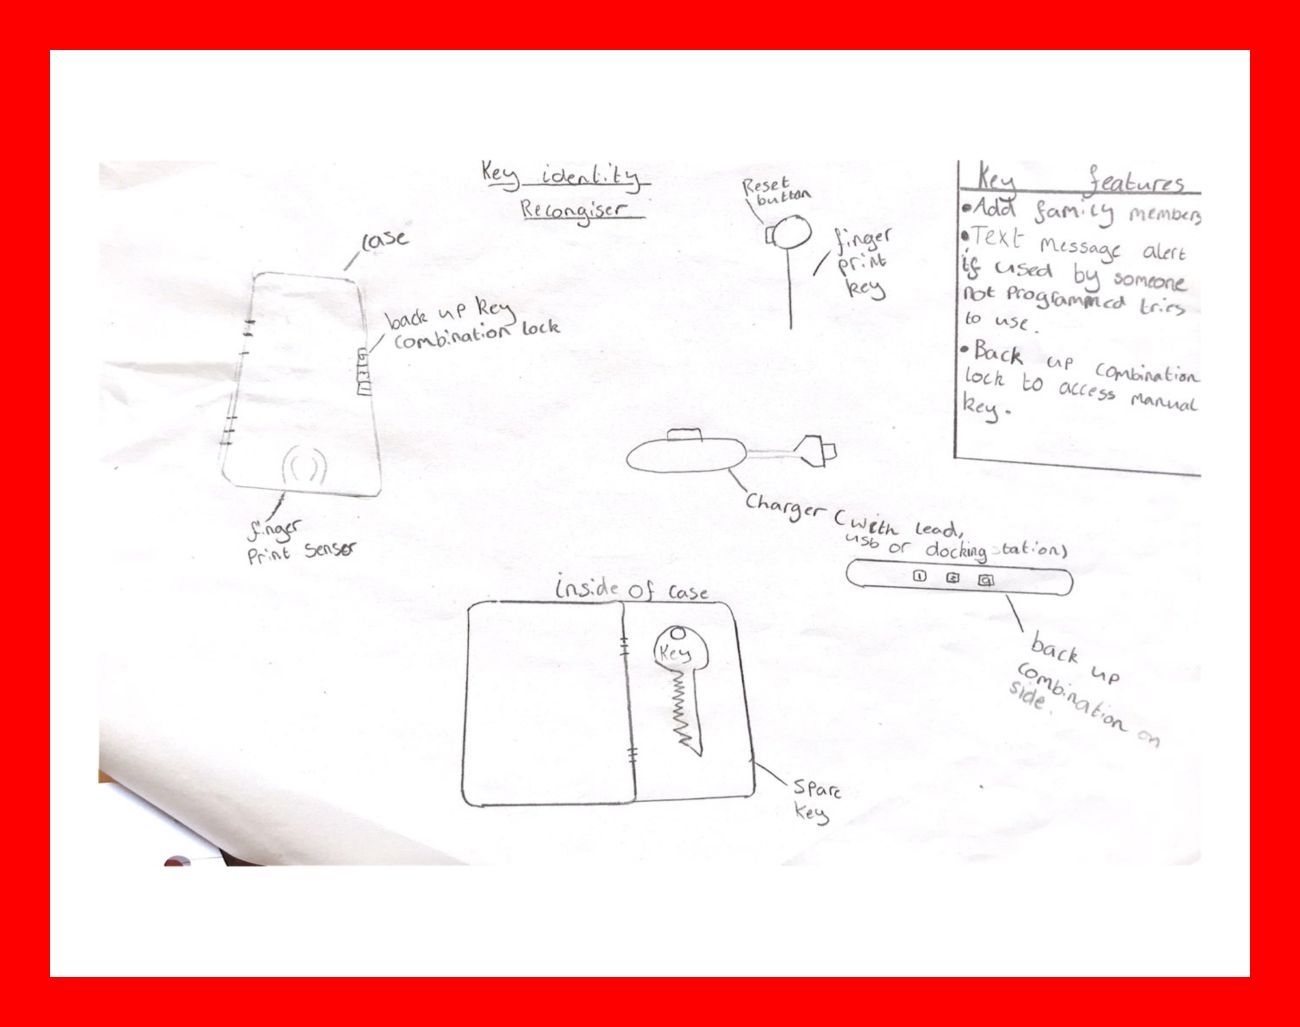 Key identity
Recongiser
case
back up key
combination lock
finger
print senser
Reset
button
finger
print
key
Key features
•Add family members
•Text message alert
if used by someone
not programmed tries
to use.
•Back up combination
lock to access manual
key.
Charger (with lead,
usb or docking station)
1 2 9
back up
combination on
side.
inside of case
Key
Spare
key